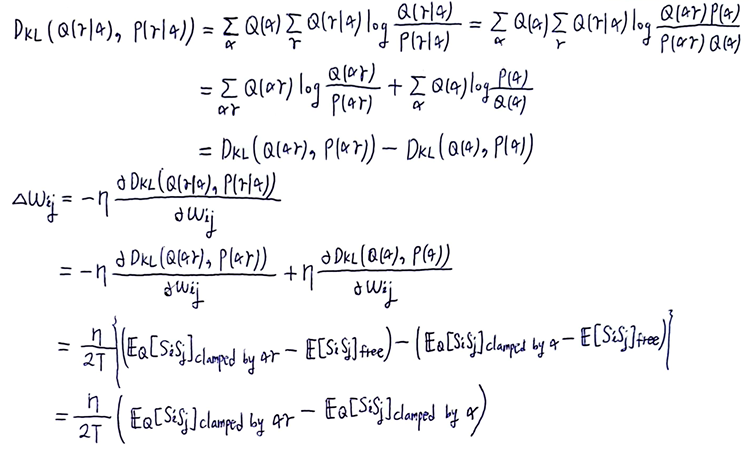 D_KL(Q(γ|α), P(γ|α)) = Σ_α Q(α) Σ_γ Q(γ|α) log Q(γ|α)/P(γ|α) = Σ_α Q(α) Σ_γ Q(γ|α) log Q(αγ)P(α)/P(αγ)Q(α)
= Σ_αγ Q(αγ) log Q(αγ)/P(αγ) + Σ_α Q(α) log P(α)/Q(α)
= D_KL(Q(αγ), P(αγ)) − D_KL(Q(α), P(α))
ΔW_ij = −η ∂D_KL(Q(γ|α), P(γ|α))/∂W_ij
= −η ∂D_KL(Q(αγ), P(αγ))/∂W_ij + η ∂D_KL(Q(α), P(α))/∂W_ij
= η/2T {(𝔼_Q[SiSj]_clamped by αγ − 𝔼[SiSj]_free) − (𝔼_Q[SiSj]_clamped by α − 𝔼[SiSj]_free)}
= η/2T (𝔼_Q[SiSj]_clamped by αγ − 𝔼_Q[SiSj]_clamped by α)